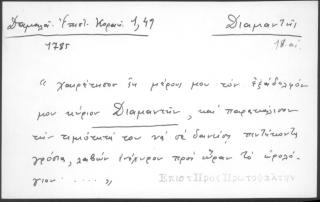 Δαμαλᾶ. Ἐπιστ. Κοραῆ 1, 49
Διαμαντῆς
1785
18 αἰ.
« χαιρέτησον ἐκ μέρους μου τὸν ἐξάδελφόν
μου κύριον Διαμαντῆν, καὶ παρακάλεσον
τὴν τιμιότητά του νὰ σὲ δανείσῃ πεντήκοντα
γρόσια, λαβὼν ἐνέχυρον πρὸς ὥραν τὸ ὡρολό-
γιον . . . . . »
Επιστ Προς Πρωτοψάλτην